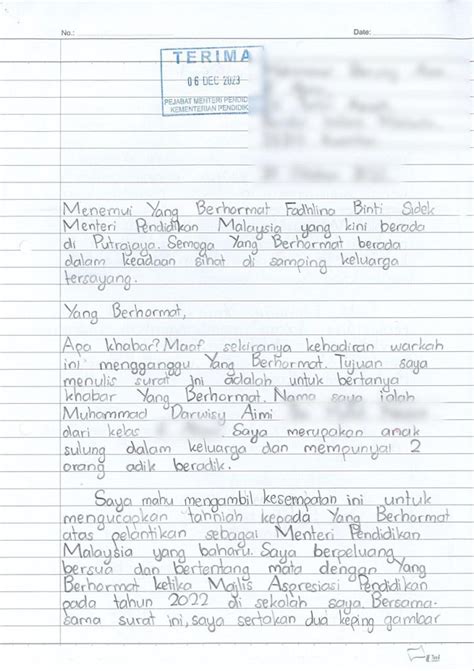 No.:
Date:
TERIMA
06 DEC 2023
PEJABAT MENTERI PENDIDI
KEMENTERIAN PENDIDIK
Menemui Yang Berhormat Fadhlina Binti Sidek
Menteri Pendidikan Malaysia yang kini berada
di Putrajaya. Semoga Yang Berhormat berada
dalam keadaan sihat di samping keluarga
tersayang.
Yang Berhormat,
Apa khabar? Maaf sekiranya kehadiran warkah
ini mengganggu Yang Berhormat. Tujuan saya
menulis surat ini adalah untuk bertanya
khabar Yang Berhormat. Nama saya ialah
Muhammad Darwisy Aimi
dari kelas Saya merupakan anak
sulung dalam keluarga dan mempunyai 2
orang adik beradik.
Saya mahu mengambil kesempatan ini untuk
mengucapkan tahniah kepada Yang Berhormat
atas pelantikan sebagai Menteri Pendidikan
Malaysia yang baharu. Saya berpeluang
bersua dan bertentang mata dengan Yang
Berhormat ketika Majlis Aspresiasi Pendidikan
pada tahun 2022 di sekolah saya. Bersama-
sama surat ini, saya sertakan dua keping gambar